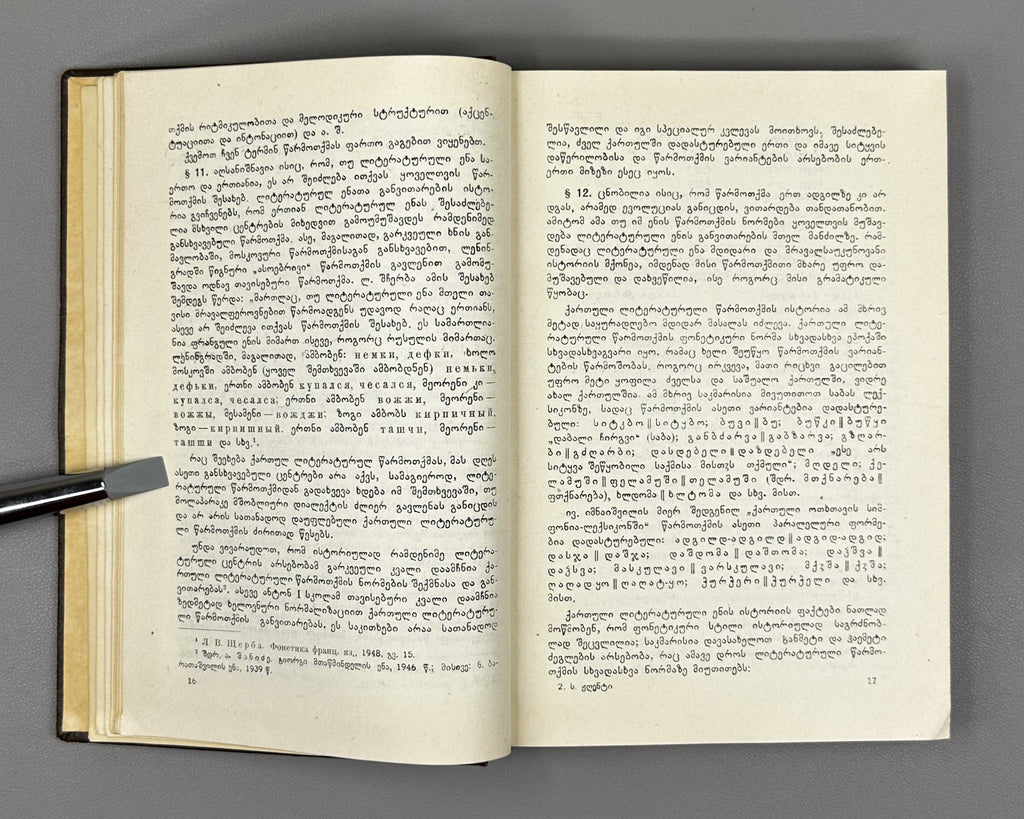 თქმის რიტმიკულობითა და მელოდიკური სტრუქტურით (აქცენ-
ტუაციითა და ინტონაციით) და ა. შ.
ქვემოთ ჩვენ ტერმინ წარმოთქმას ფართო გაგებით ვიყენებთ.
§ 11. აღსანიშნავია ისიც, რომ, თუ ლიტერატურული ენა სა-
ერთო და ერთიანია, ეს არ შეიძლება ითქვას ყოველთვის წარ-
მოთქმის შესახებ. ლიტერატურულ ენათა განვითარების ისტო-
რია გვიჩვენებს, რომ ერთიან ლიტერატურულ ენას შესაძლებე-
ლია მსხვილი ცენტრების მიხედვით გამოუმუშავდეს რამდენიმედ
განსხვავებული წარმოთქმა. ასე, მაგალითად, გარკვეული ხნის გან-
მავლობაში, მოსკოვური წარმოთქმისაგან განსხვავებით, ლენინ-
გრადში წიგნური „ასოებრივი“ წარმოთქმის გავლენით გამომუ-
შავდა ოდნავ თავისებური წარმოთქმა. ლ. შჩერბა ამის შესახებ
შემდეგს წერდა: „მართლაც, თუ ლიტერატურული ენა მთელი თა-
ვისი მრავალფეროვნებით წარმოადგენს უდავოდ რაღაც ერთიანს,
ასევე არ შეიძლება ითქვას წარმოთქმის შესახებ. ეს სამართლი-
ანია ფრანგული ენის მიმართ ისევე, როგორც რუსულის მიმართაც.
ლენინგრადში, მაგალითად, ამბობენ: немки, дефки, ხოლო
მოსკოვში ამბობენ (ყოველ შემთხვევაში ამბობდნენ) немьки,
дефьки, ერთნი ამბობენ купался, чесался, მეორენი კი—
купалса, чесалса; ერთნი ამბობენ вожжи, მეორენი—
вожжы, მესამენი—вожджи; ზოგი ამბობს кирпичный,
ზოგი—кирпишный. ერთნი ამბობენ ташчи, მეორენი—
ташши და სხვ.¹.
რაც შეეხება ქართულ ლიტერატურულ წარმოთქმას, მას დღეს
ასეთი განსხვავებული ცენტრები არა აქვს, სამაგიეროდ, ლიტე-
რატურული წარმოთქმიდან გადახვევა ხდება იმ შემთხვევაში, თუ
მოლაპარაკე მშობლიური დიალექტის ძლიერ გავლენას განიცდის
და არ არის სათანადოდ დაუფლებული ქართული ლიტერატურუ-
ლი წარმოთქმის ძირითად წესებს.
უნდა ვივარაუდოთ, რომ ისტორიულად რამდენიმე ლიტერა-
ტურული ცენტრის არსებობამ გარკვეული კვალი დააჩნია ქა-
რთული ლიტერატურული წარმოთქმის ნორმების შექმნასა და გან-
ვითარებას². ასევე ანტონ I სკოლამ თავისებური კვალი დააჩნია
ზედმეტად ხელოვნური ნორმალიზაციით ქართული ლიტერატურუ-
ლი წარმოთქმის განვითარებას. ეს საკითხები არაა სათანადოდ
¹ Л. В. Щерба. Фонетика франц. яз., 1948, გვ. 15.
² შდრ. ა. შანიძე, გიორგი მთაწმინდელის ენა, 1946 წ.; მისივე: ნ. ბა-
რათაშვილის ენა, 1939 წ.
16
შესწავლილი და იგი სპეციალურ კვლევას მოითხოვს, შესაძლებე-
ლია, ძველ ქართულში დადასტურებული ერთი და იმავე სიტყვის
დაწერილობისა და წარმოთქმის ვარიანტების არსებობის ერთ-
ერთი მიზეზი ესეც იყოს.
§ 12. ცნობილია ისიც, რომ წარმოთქმა ერთ ადგილზე კი არ
დგას, არამედ ევოლუციას განიცდის, ვითარდება თანდათანობით.
ამიტომ ამა თუ იმ ენის წარმოთქმის ნორმები ყოველთვის მუშავ-
დება ლიტერატურული ენის განვითარების მთელ მანძილზე. რამ-
დენადაც ლიტერატურული ენა მდიდარი და მრავალსაუკუნოვანი
ისტორიის მქონეა, იმდენად მისი წარმოთქმითი მხარე უფრო და-
მუშავებული და დახვეწილია, ისე როგორც მისი გრამატიკული
წყობაც.
ქართული ლიტერატურული წარმოთქმის ისტორია ამ მხრივ
მეტად საყურადღებო მდიდარ მასალას იძლევა. ქართული ლიტე-
რატურული წარმოთქმის ფონეტიკური ნორმა სხვადასხვა ეპოქაში
სხვადასხვაგვარი იყო, რამაც ხელი შეუწყო წარმოთქმის ვარიან-
ტების წარმოშობას. როგორც ირკვევა, მათი რიცხვი გაცილებით
უფრო მეტი ყოფილა ძველსა და საშუალო ქართულში, ვიდრე
ახალ ქართულშია. ამ მხრივ საკმარისია მივუთითოთ საბას ლექ-
სიკონზე, სადაც წარმოთქმის ასეთი ვარიანტებია დადასტურე-
ბული: სიტკბო‖სიტყბო; ბუვი‖ბუ; ბუწკი‖ბუწყი
„დაბალი ჩირგვი“ (საბა); განბძარვა‖გაბზარვა; გზღარ-
ბი‖გძღარბი; დასდებელი‖დაზდებელი „ესე არს
სიტყვა შეწყობილი საქმისა მისთჳს თქმული“; მღდელი; ქე-
ლამუში‖ფელამუში‖თელამუში (შდრ. მთქნარება‖
ფთქნარება), ხლდომა‖ხლტომა და სხვ. მისთ.
ივ. იმნაიშვილის მიერ შედგენილ „ქართული ოთხთავის სიმ-
ფონია-ლექსიკონში“ წარმოთქმის ასეთი პარალელური ფორმე-
ბია დადასტურებული: ადგილდ-ადგილდ‖ადგიდ-ადგიდ;
დასჯა‖დაშჯა; დაშდომა‖დაშთომა; დაჴშვა‖
დაჴსვა; მასკულავი‖ვარსკულავი; მჭჳშა‖ჭჳშა;
ღაღადყო‖ღაღატ-ყო; ჰურჰერი‖ჰურჰელი და სხვ.
მისთ.
ქართული ლიტერატურული ენის ისტორიის ფაქტები ნათლად
მოწმობენ, რომ ფონეტიკური სტილი ისტორიულად საგრძნობ-
ლად შეცვლილია; საკმარისია დავასახელოთ ხანმეტი და ჰაემეტი
ძეგლების არსებობა, რაც ამავე დროს ლიტერატურული წარმო-
თქმის სხვადასხვა ნორმაზე მიუთითებს:
2. ს. ჟღენტი
17